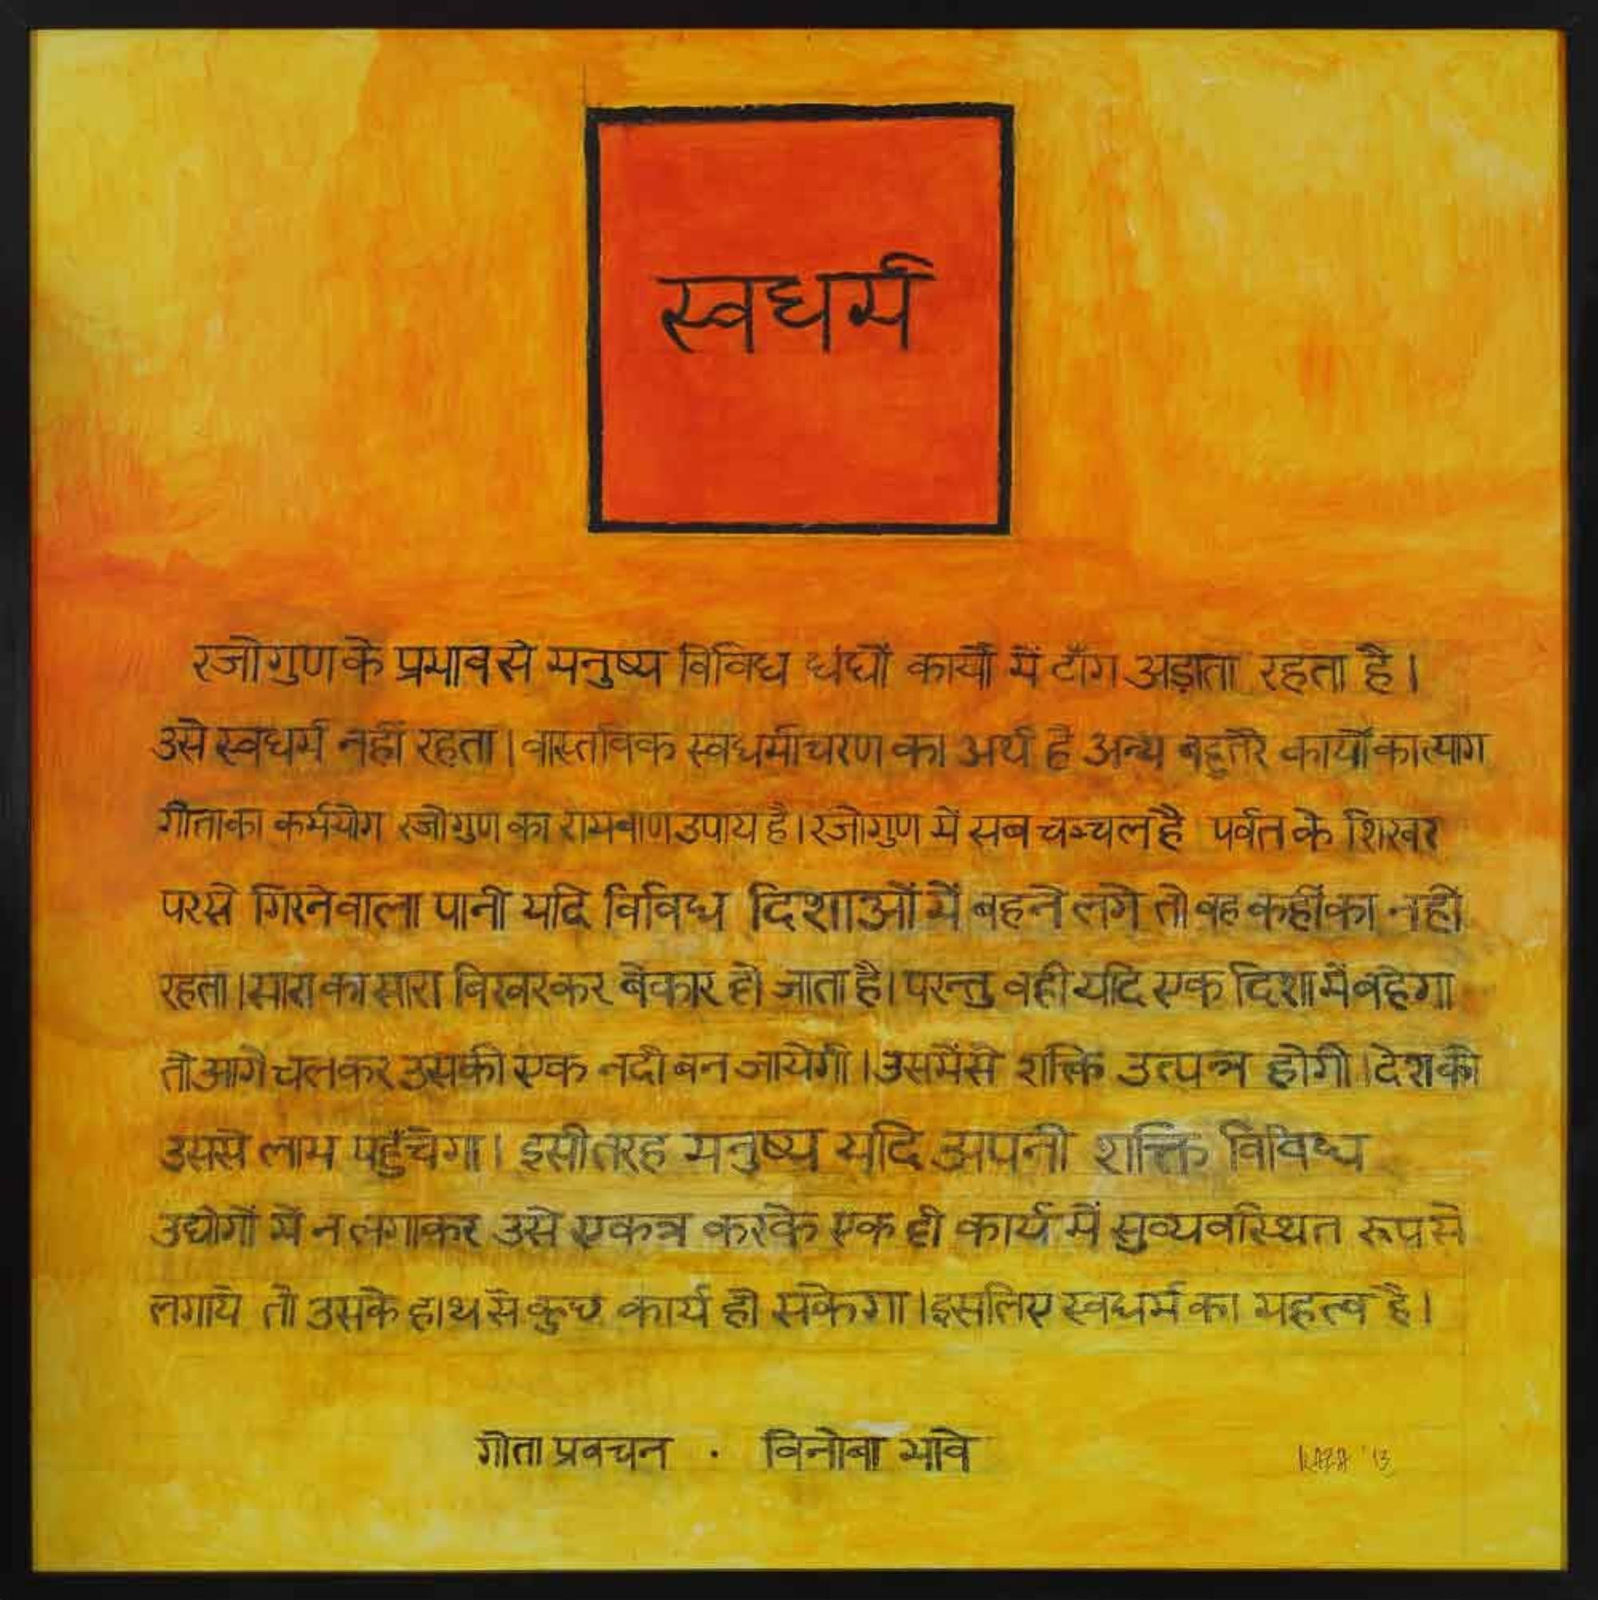 स्वधर्म
रजोगुण के प्रभाव से मनुष्य विविध धंघों कार्यों में टाँग अड़ाता रहता है।
उसे स्वधर्म नहीं रहता। वास्तविक स्वधर्माचरण का अर्थ है अन्य बहुतेरे कार्यों का त्याग
गीता का कर्मयोग रजोगुण का रामबाण उपाय है। रजोगुण में सब चञ्चल है पर्वत के शिखर
परसे गिरनेवाला पानी यदि विविध दिशाओं में बहने लगे तो वह कहीं का नहीं
रहता। सारा का सारा बिखरकर बेकार हो जाता है। परन्तु वही यदि एक दिशा में बहेगा
तो आगे चलकर उसकी एक नदी बन जायेगी। उसमेंसे शक्ति उत्पन्न होगी। देश को
उससे लाभ पहुँचेगा। इसी तरह मनुष्य यदि अपनी शक्ति विविध
उद्योगों में न लगाकर उसे एकत्र करके एक ही कार्य में सुव्यवस्थित रूप से
लगाये तो उसके हाथ से कुछ कार्य हो सकेगा। इसलिए स्वधर्म का महत्व है।
गीता प्रवचन · विनोबा भावे
RAZA '13